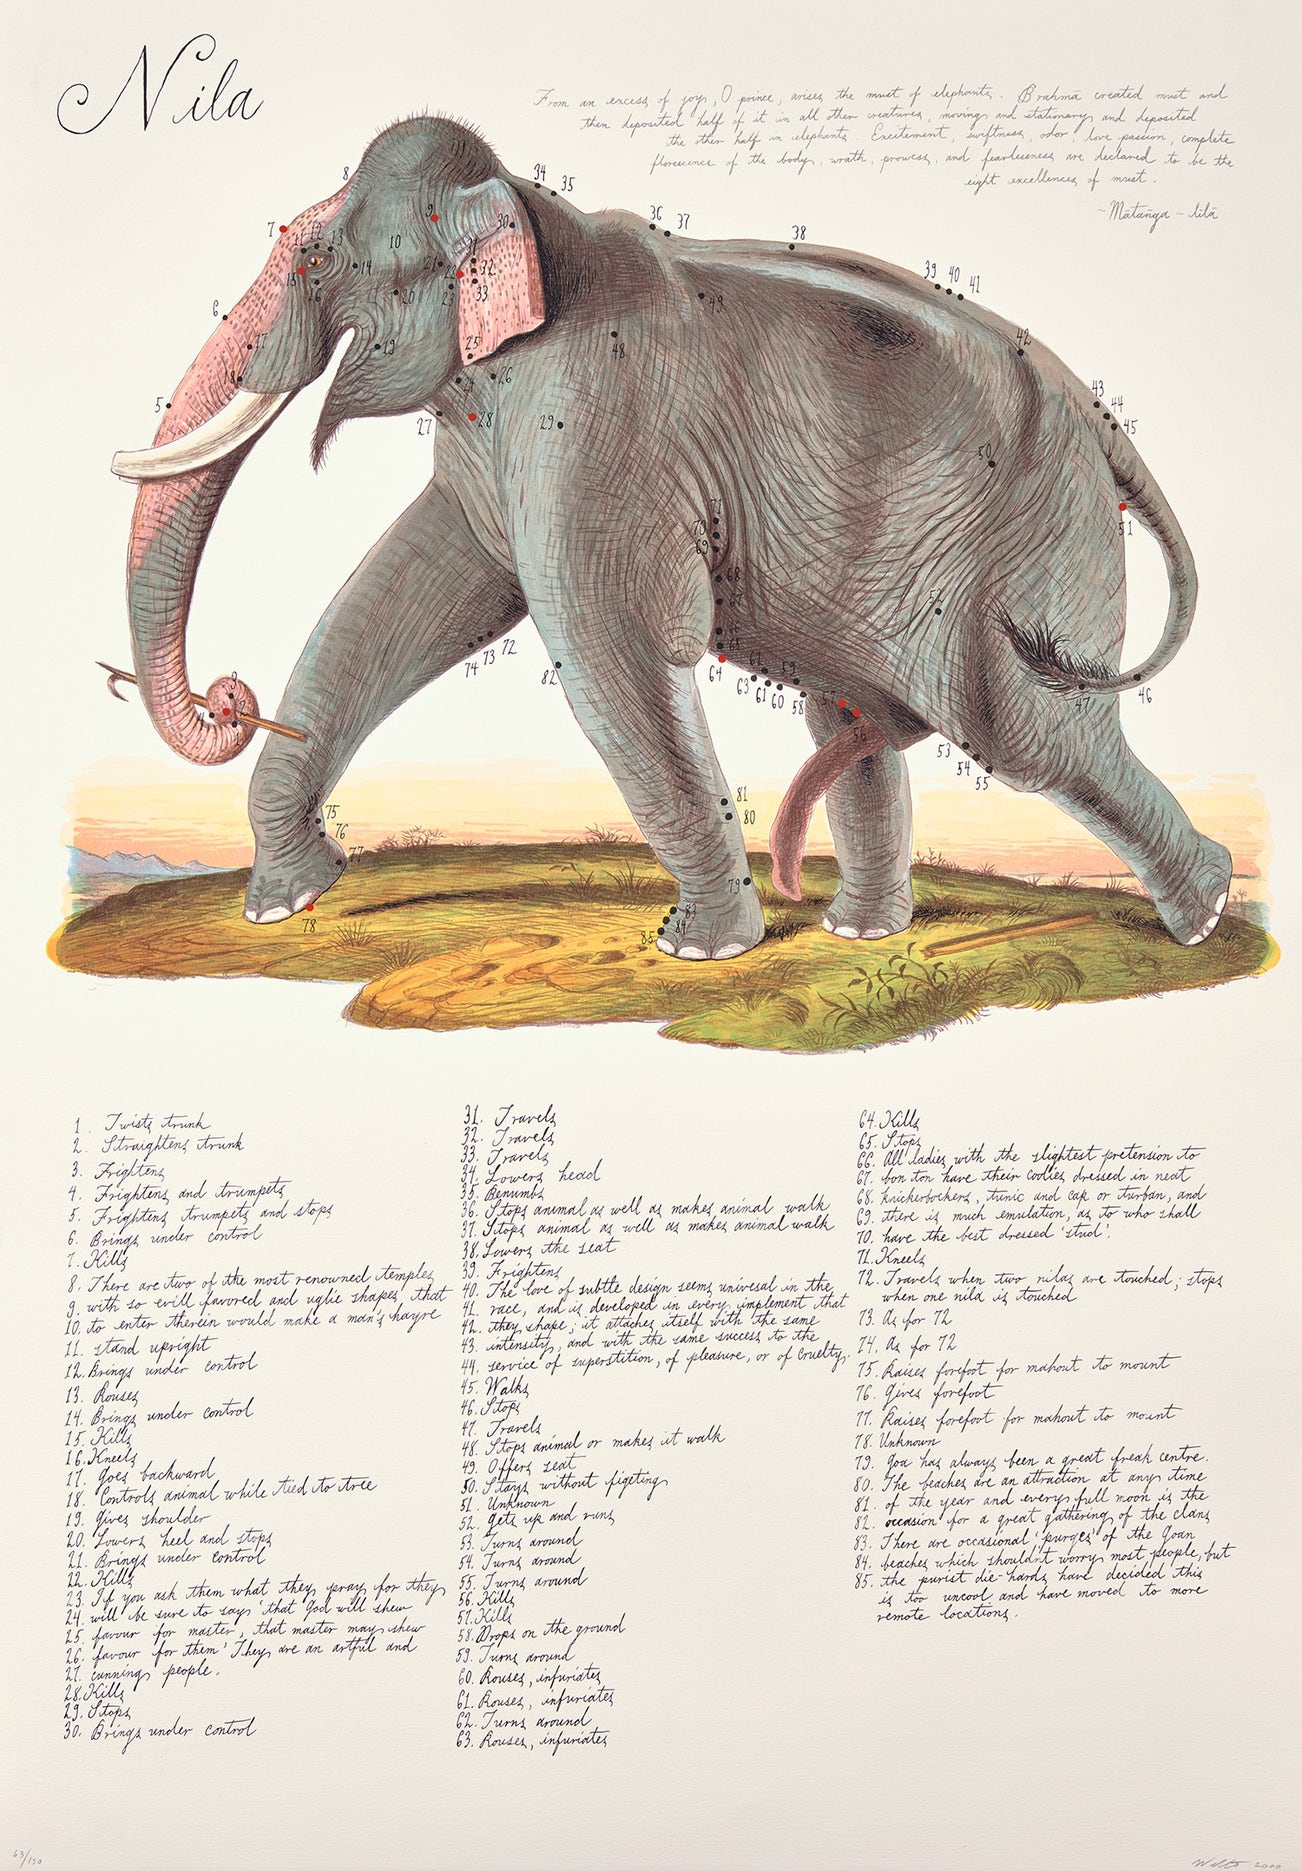 Nila
From an excess of joy, O prince, arises the must of elephants. Brahmā created must and
then deposited half of it in all other creatures, moving and stationary and deposited
the other half in elephants. Excitement, swiftness, odor, love passion, complete
florescence of the body, wrath, prowess, and fearlessness are declared to be the
eight excellences of must.
- Mātanga - līlā
1. Twists trunk
2. Straightens trunk
3. Frightens
4. Frightens and trumpets
5. Frightens trumpets and stops
6. Brings under control
7. Kills
8. There are two of the most renowned temples
9. with so evill favored and uglie shapes that
10. to enter therein would make a man's hayre
11. stand upright
12. Brings under control
13. Rouses
14. Brings under control
15. Kills
16. Kneels
17. Goes backward
18. Controls animal while tied to tree
19. Gives shoulder
20. Lowers heel and stops
21. Brings under control
22. Kills
23. If you ask them what they pray for they
24. will be sure to say 'that God will shew
25. favour for master, that master may shew
26. favour for them' They are an artful and
27. cunning people.
28. Kills
29. Stops
30. Brings under control
31. Travels
32. Travels
33. Travels
34. Lowers head
35. Benumbs
36. Stops animal as well as makes animal walk
37. Stops animal as well as makes animal walk
38. Lowers the seat
39. Frightens
40. The love of subtle design seems univesal in the
41. race, and is developed in every implement that
42. they shape; it attaches itself with the same
43. intensity, and with the same success to the
44. service of superstition, of pleasure, or of cruelty.
45. Walks
46. Stops
47. Travels
48. Stops animal or makes it walk
49. Offers seat
50. Stays without figeting
51. Unknown
52. Gets up and runs
53. Turns around
54. Turns around
55. Turns around
56. Kills
57. Kills
58. Drops on the ground
59. Turns around
60. Rouses, infuriates
61. Rouses, infuriates
62. Turns around
63. Rouses, infuriates
64. Kills
65. Stops
66. All ladies with the slightest pretension to
67. bon ton have their coolies dressed in neat
68. knickerbockers, tunic and cap or turban, and
69. there is much emulation, as to who shall
70. have the best dressed 'stud'.
71. Kneels
72. Travels when two nilas are touched; stops
when one nila is touched
73. As for 72
74. As for 72
75. Raises forefoot for mahout to mount
76. Gives forefoot
77. Raises forefoot for mahout to mount
78. Unknown
79. Goa has always been a great freak centre.
80. The beaches are an attraction at any time
81. of the year and every full moon is the
82. occasion for a great gathering of the clans
83. There are occasional 'purges' of the Goan
84. beaches which shouldn't worry most people, but
85. the purist die-hards have decided this
is too uncool and have moved to more
remote locations.
63/150
2000